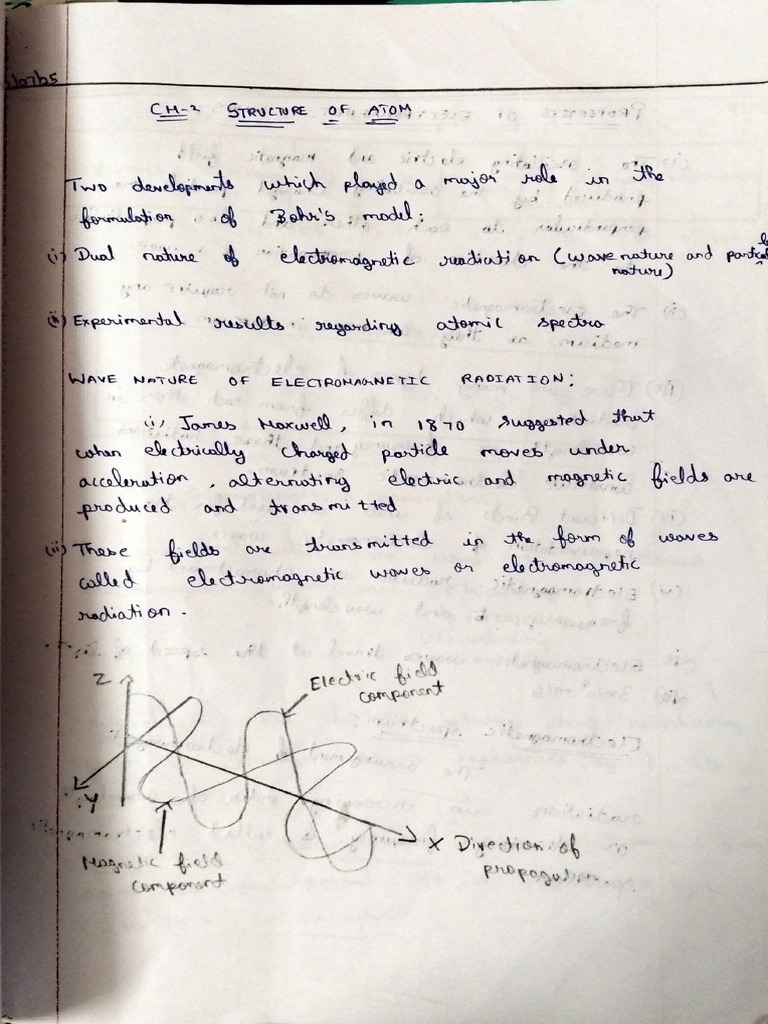 CH-2 STRUCTURE OF ATOM
Two developments which played a major role in the
formulation of Bohr's model:
(i) Dual nature of electromagnetic radiation (wave nature and particle
nature)
(ii) Experimental results regarding atomic spectra
WAVE NATURE OF ELECTROMAGNETIC RADIATION:
(i) James Maxwell, in 1870 suggested that
when electrically charged particle moves under
acceleration, alternating electric and magnetic fields are
produced and transmitted
(ii) These fields are transmitted in the form of waves
called electromagnetic waves or electromagnetic
radiation.
Z
Electric field
component
Y
X Direction of
propagation
Magnetic field
component